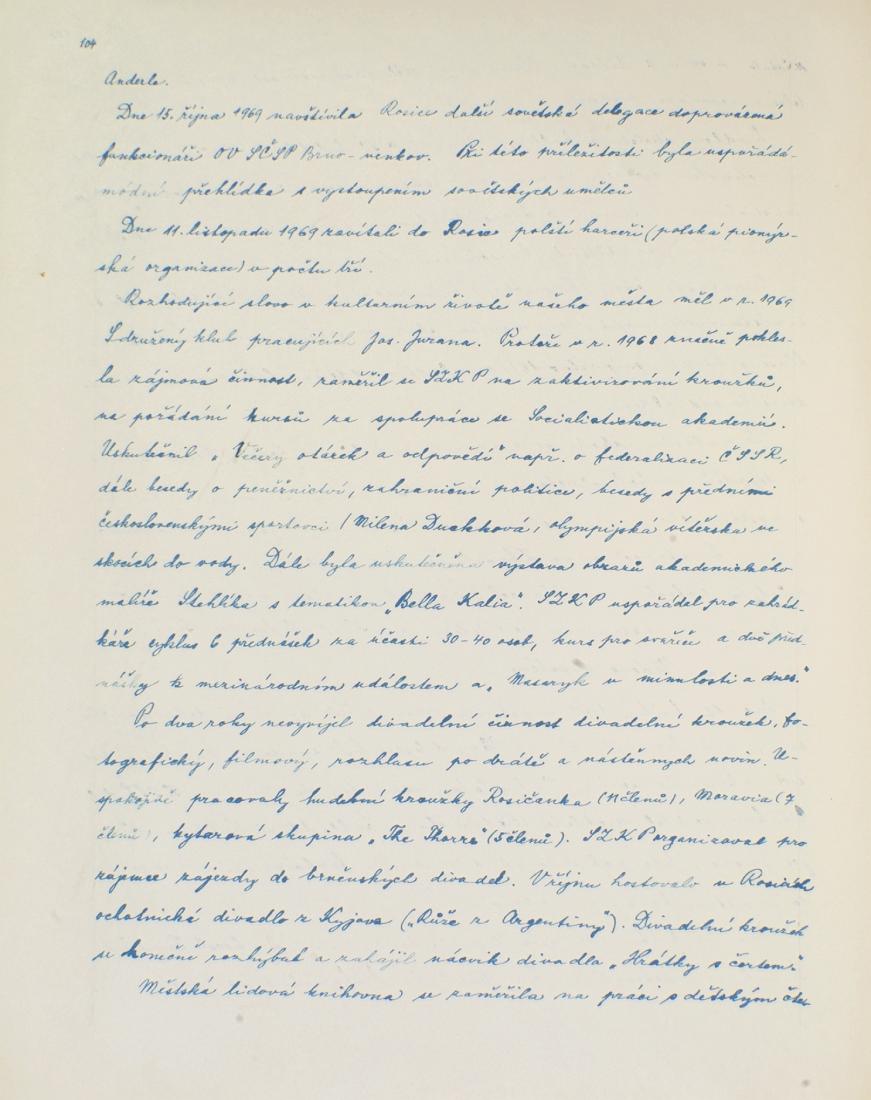 104
Anderle.
Dne 15. října 1969 navštívila Rosice další sovětská delegace doprovázená
funkcionáři OV SČSP Brno-venkov. Při této příležitosti byla uspořádá-
módní přehlídka s vystoupením sovětských umělců
Dne 11. listopadu 1969 zavítali do Rosic polští harceři (polská pionýr-
ská organizace) v počtu tří.
Rozhodující slovo v kulturním životě našeho města měl v r. 1969
Sdružený klub pracujících Jos. Jurana. Protože v r. 1968 značně pokles-
la zájmová činnost, zaměřil se SZK P na zaktivizování kroužků,
na pořádání kursů za spolupráce se Socialistickou akademií.
Uskutečnil „Večery otázek a odpovědí" např. o federalizaci ČSSR,
dále besedy o peněžnictví, zahraniční politice, besedy s předními
československými sportovci (Milena Duchková, olympijská vítězka ve
skocích do vody. Dále byla uskutečněna výstava obrazů akademického
malíře Stehlíka s tematikou „Bella Kalia". SZKP uspořádal pro zahrád-
káře cyklus 6 přednášek za účasti 30-40 osob, kurs pro svářeče a dvě před-
nášky k mezinárodním událostem a „Masaryk v minulosti a dnes."
Po dva roky nevyvíjel divadelní činnost divadelní kroužek, fo-
tografický, filmový, rozhlasu po drátě a nástěnných novin. U-
spokojivě pracovaly hudební kroužky Rosičanka (11členů), Moravia (7
členů), kytarová skupina „The Thorrs" (5členů). SZK P organizoval pro
zájemce zájezdy do brněnských divadel. V říjnu hostovalo v Rosicích
ochotnické divadlo z Kyjova („Růže z Argentiny"). Divadelní kroužek
se konečně rozhýbal a zahájil nácvik divadla „Hrátky s čertem."
Městská lidová knihovna se zaměřila na práci s dětským čte-